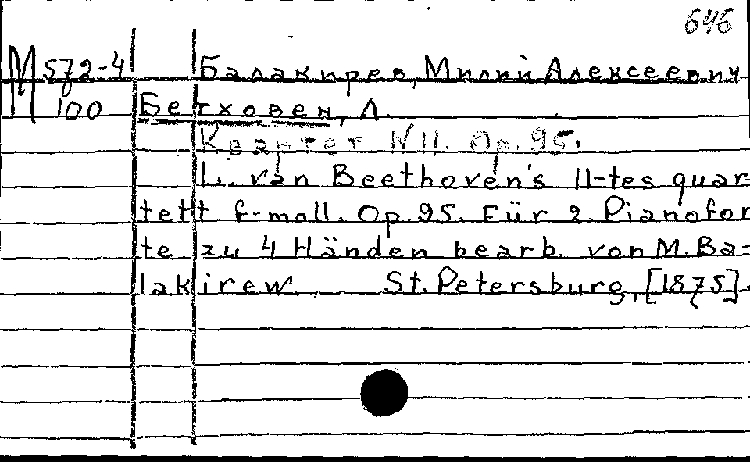 646
М 572-4 Балакирев, Милий Алексеевич
100 Бетховен, Л.
Квартет N 11. Op. 95.
L. van Beethoven's 11-tes quar-
tett f-moll. Op. 95. Für 2 Pianofor
te zu 4 Händen bearb. von M. Ba-
lakirew. St. Petersburg, [1875].